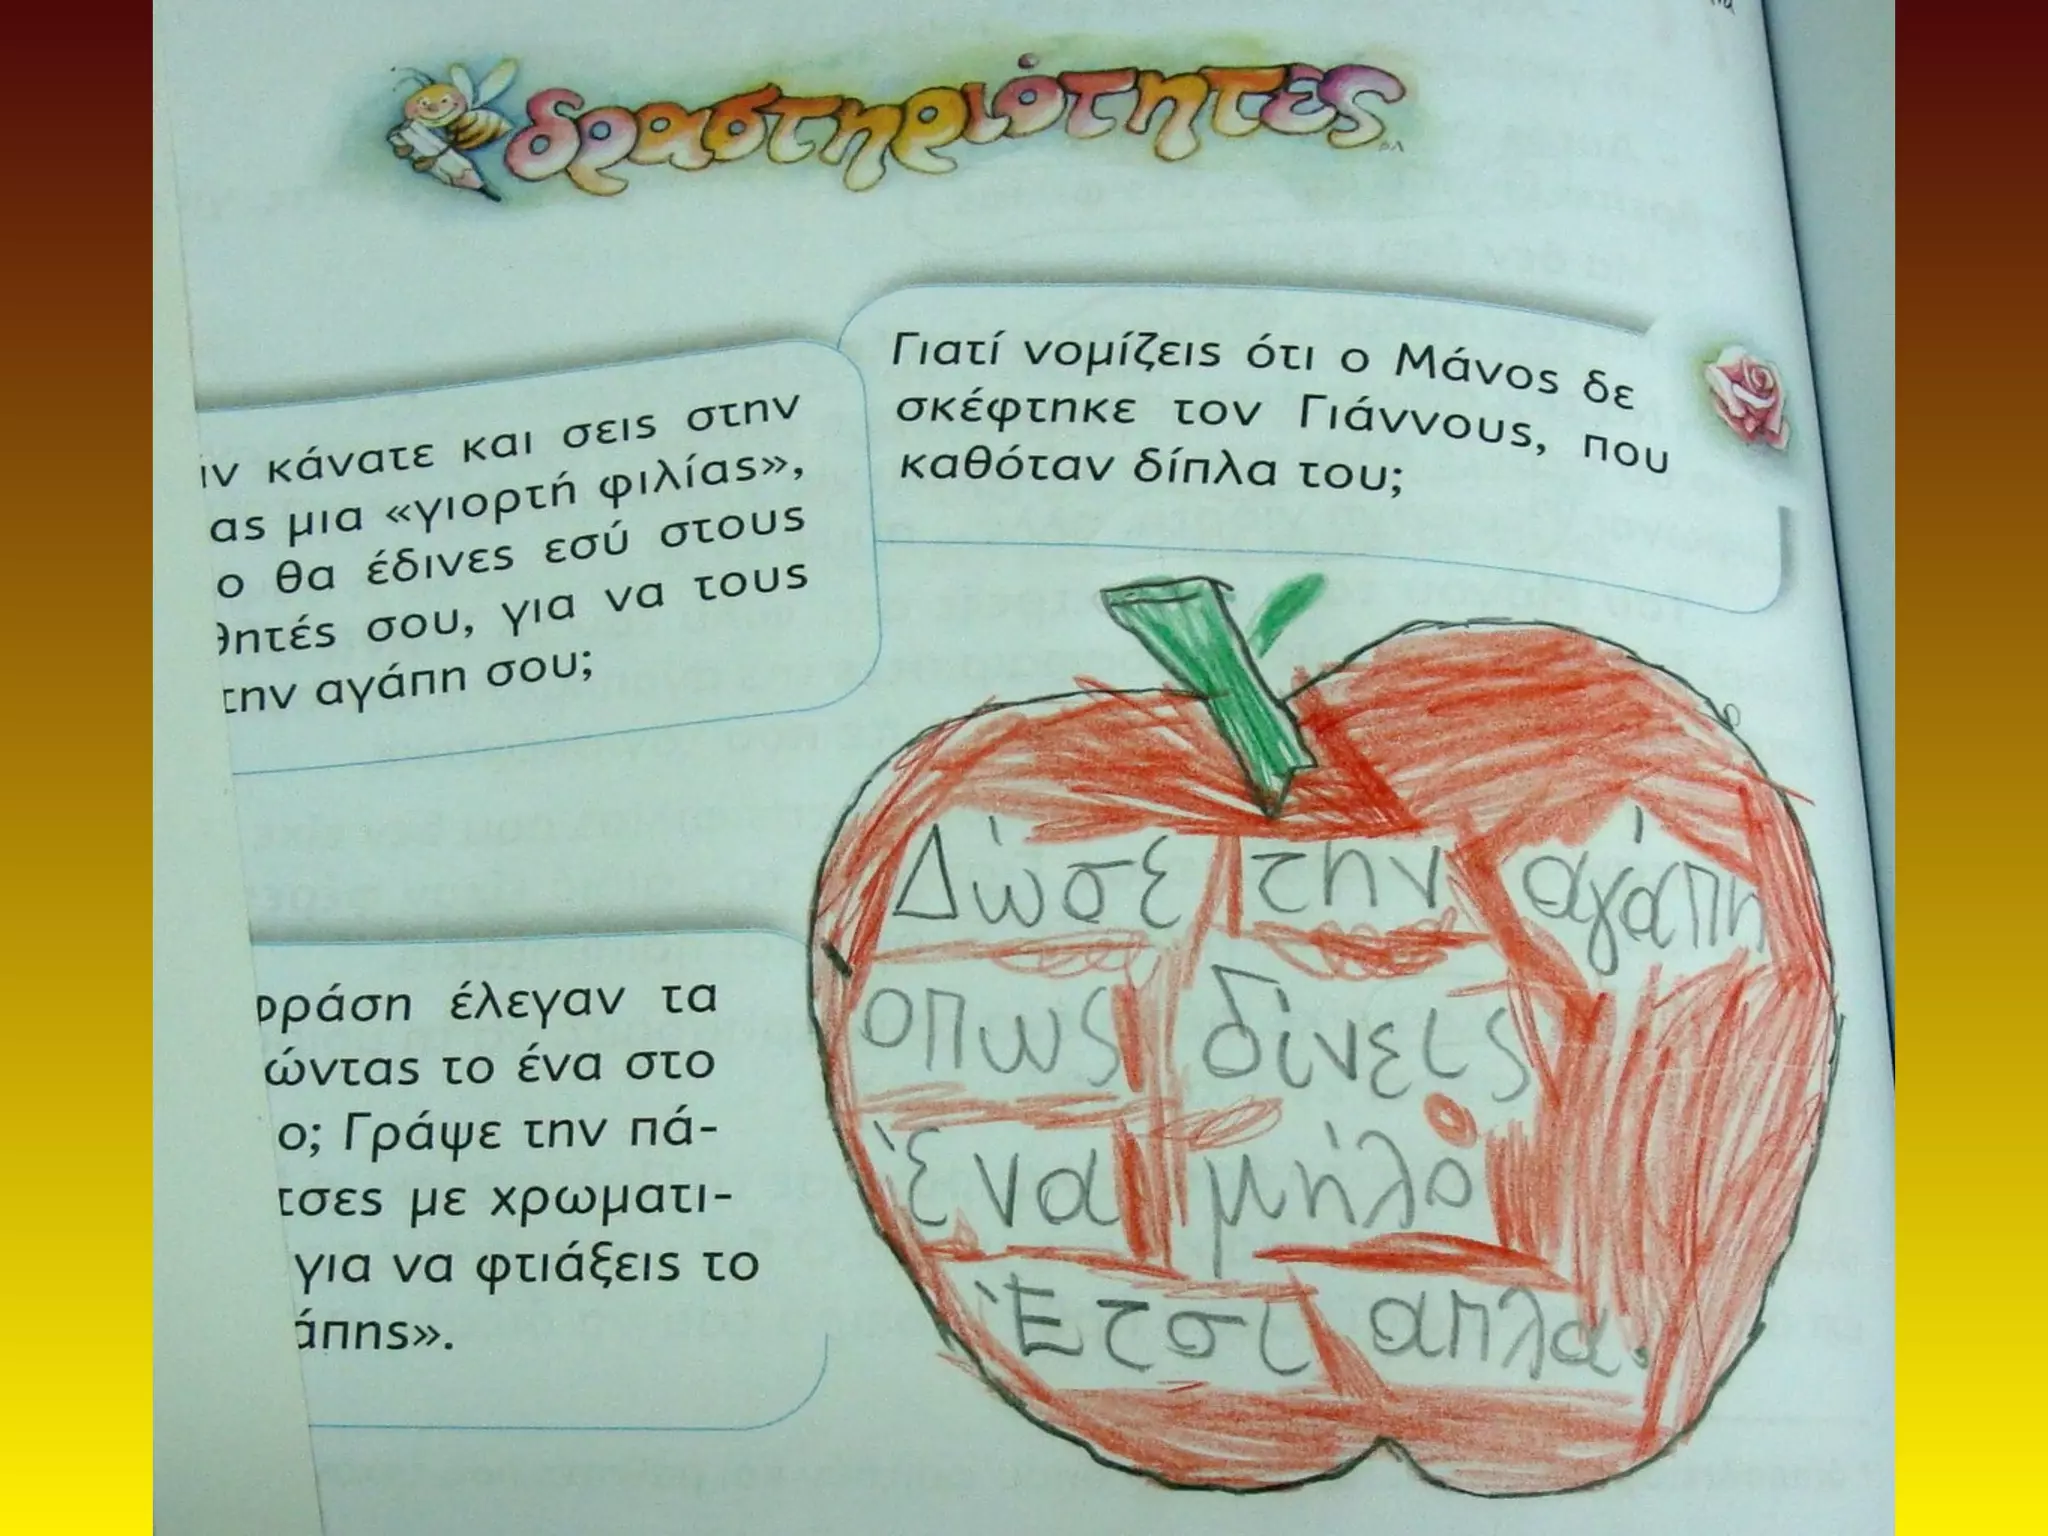 δραστηριότητες
Γιατί νομίζεις ότι ο Μάνος δε
σκέφτηκε τον Γιάννους, που
καθόταν δίπλα του;
κάνατε και σεις στην
μια «γιορτή φιλίας»,
θα έδινες εσύ στους
σου, για να τους
αγάπη σου;
έλεγαν τα
το ένα στο
Γράψε την πά-
με χρωματι-
για να φτιάξεις το
Δώσε την αγάπη
οπως δίνεις
ένα μήλο
Έτσι απλα.